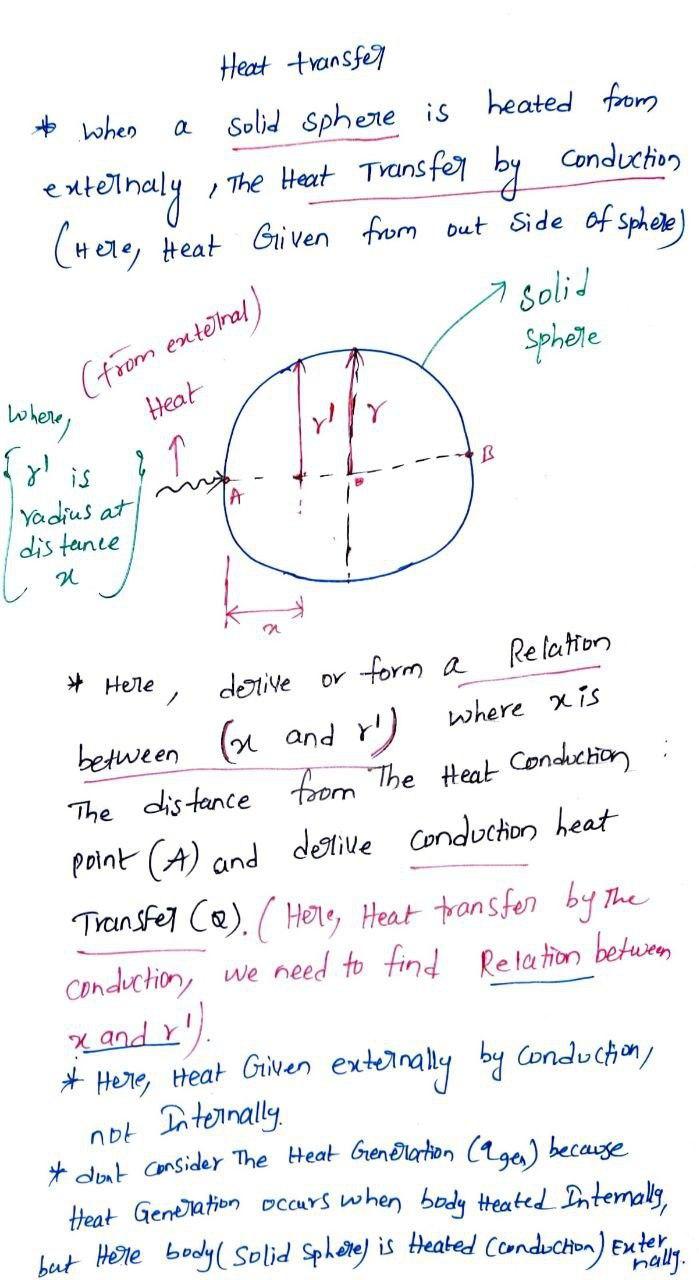 Heat transfer
* When a solid sphere is heated from
externaly, The Heat Transfer by conduction
(Here, Heat Given from out side of sphere)
solid
sphere
(from external)
Heat
where,
{ r' is }
radius at
distance
x
r'
r
A
B
x
* Here, derive or form a Relation
between (x and r') where x is
The distance from The Heat Conduction :
point (A) and derive conduction heat
Transfer (Q). (Here, Heat transfer by The
conduction, we need to find Relation between
x and r').
* Here, Heat Given externally by conduction,
not Internally.
* dont consider The Heat Generation (qgen) because
Heat Generation occurs when body Heated Internally,
but Here body (solid sphere) is Heated (conduction) Exter
nally.